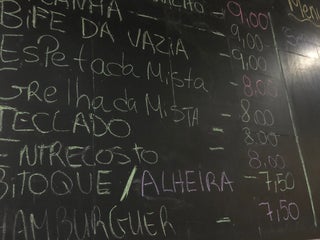 ANHA - 9,00
BIFE DA VAZIA - 9,00
Espetada Mista - 9,00
Grelhada Mista - 8,00
TECCADO - 8,00
ENTRECOSTO - 8,00
BITOQUE / ALHEIRA - 7,50
HAMBURGUER - 7,50
Menu